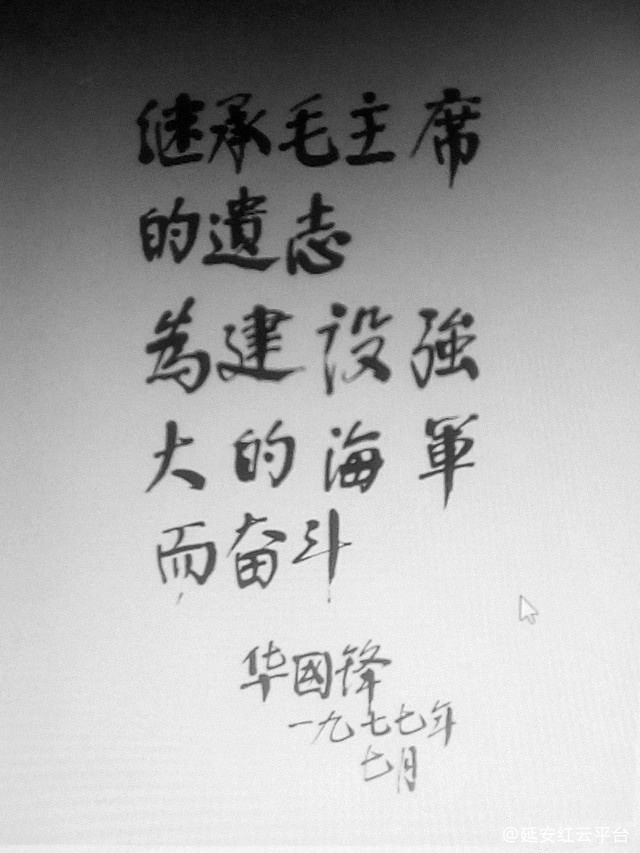 继承毛主席
的遺志
為建设強
大的海軍
而奋斗
华國锋
一九七七年
七月
@延安红云平台